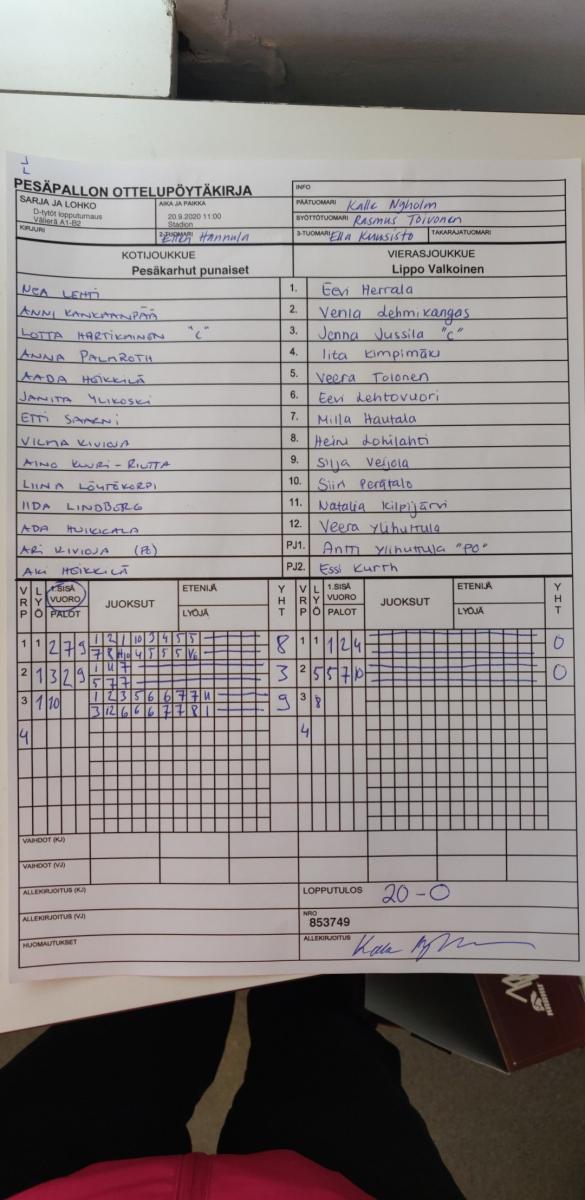 J
L
PESÄPALLON OTTELUPÖYTÄKIRJA
INFO
SARJA JA LOHKO
D-tytöt lopputurnaus
Välierä A1-B2
AIKA JA PAIKKA
20.9.2020 11:00
Stadion
PÄÄTUOMARI Kalle Nyholm
SYÖTTÖTUOMARI Rasmus Toivonen
KIRJURI
2-TUOMARI Ellen Hannula
3-TUOMARI Ella Kuusisto
TAKARAJATUOMARI
KOTIJOUKKUE
Pesäkarhut punaiset
VIERASJOUKKUE
Lippo Valkoinen
NEA LEHTI 1. Eevi Herrala
ANNI KANKAANPÄÄ 2. Venla Lehmikangas
LOTTA HARTIKAINEN "C" 3. Jenna Jussila "C"
ANNA PALMROTH 4. Iita Kimpimäki
AADA HEIKKILÄ 5. Veera Tolonen
JANITA YLIKOSKI 6. Eevi Lehtovuori
ETTI SAARNI 7. Milla Hautala
VILMA KIVIOJA 8. Heini Lohilahti
AINO KUURI-RIUTTA 9. Silja Veijola
LIINA LÖYTÖKORPI 10. Siiri Perätalo
IIDA LINDBORG 11. Natalia Kilpijärvi
ADA 12. Veera Ylihuttula
ARI KIVIOJA (PJ) PJ1. Antti Ylihuttula "PJ"
AKI HEIKKILÄ PJ2. Essi Kurth
VRP LYÖ 1.SISÄ VUORO PALOT JUOKSUT ETENIJÄ LYÖJÄ YHT VRP LYÖ 1.SISÄ VUORO PALOT JUOKSUT ETENIJÄ LYÖJÄ YHT
1 1 2 7 9 1 2 1 10 3 4 5 5 8 1 1 1 2 4 0
7 8 4 5 5 5
2 1 3 2 9 1 11 7 3 2 5 5 7 10 0
5 7 7
3 1 10 1 2 3 5 6 6 7 7 11 9 3 8
3 12 6 6 6 7 7 8 1
4 4
VAIHDOT (KJ)
VAIHDOT (VJ)
ALLEKIRJOITUS (KJ)
LOPPUTULOS 20-0
ALLEKIRJOITUS (VJ)
NRO
853749
HUOMAUTUKSET
ALLEKIRJOITUS